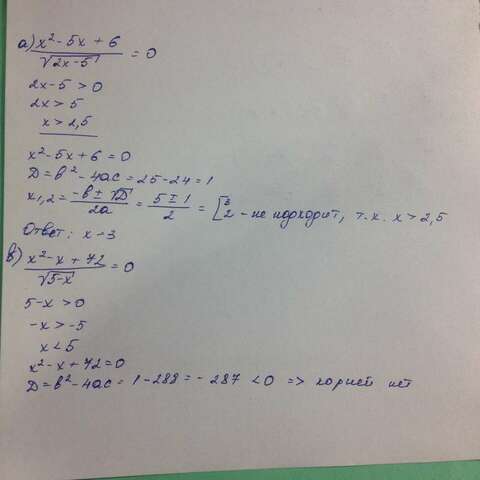 а) x² - 5x + 6 / √(2x-5) = 0
2x - 5 > 0
2x > 5
x > 2,5
x² - 5x + 6 = 0
D = b² - 4ac = 25 - 24 = 1
x₁,₂ = (-b ± √D) / 2a = (5 ± 1) / 2 = [3 2 - не подходит, т.к. x > 2,5
Ответ: x - 3
в) x² - x + 72 / √(5-x) = 0
5 - x > 0
-x > -5
x < 5
x² - x + 72 = 0
D = b² - 4ac = 1 - 288 = - 287 < 0 => корней нет